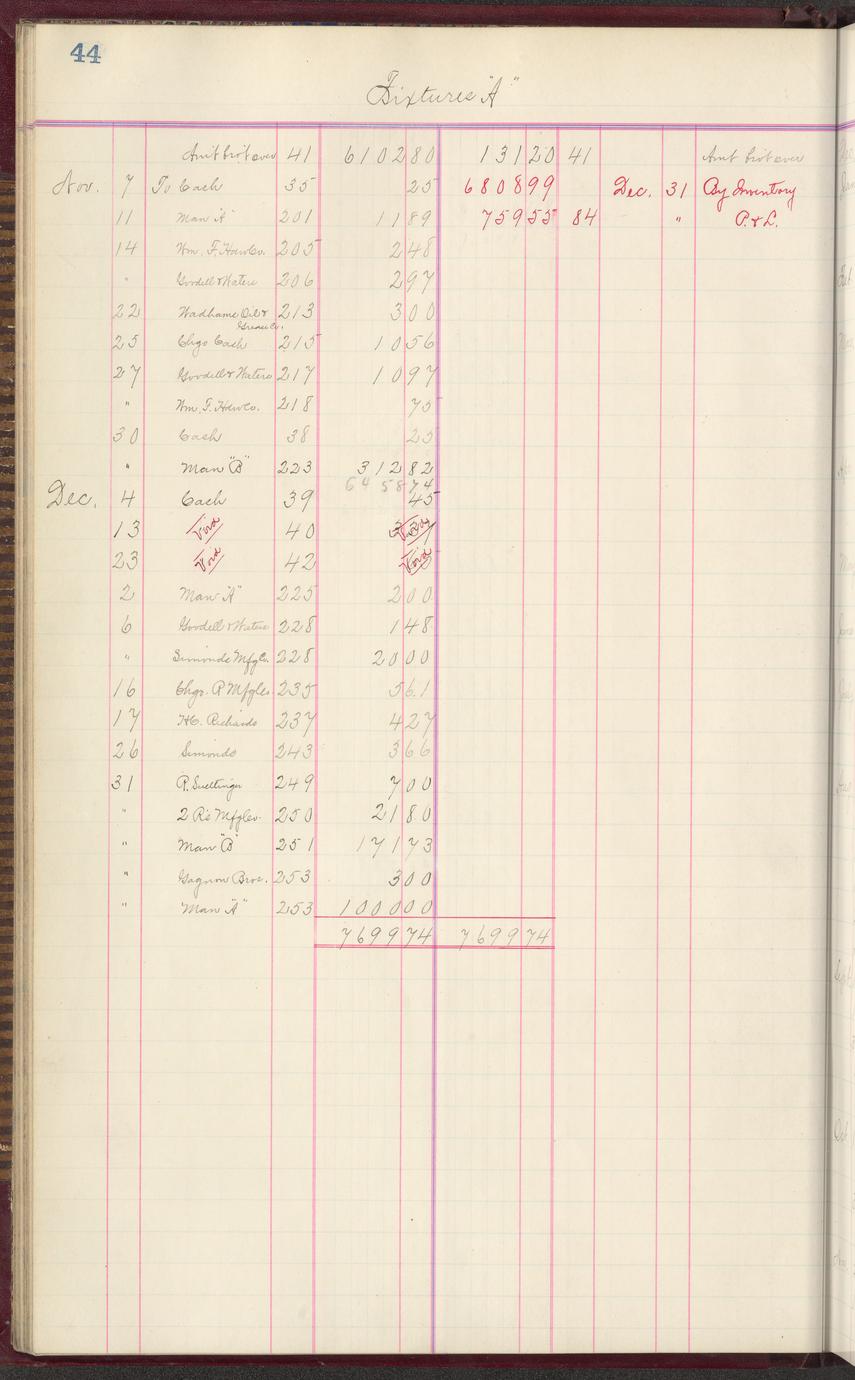 44
Fixtures "A"
Amt brot over 41 6102 80 131 20 41 Amt brot over
Nov. 7 To Cash 35 25 6808 99 Dec. 31 By Inventory
11 Man "A" 201 11 89 759 55 84 " P. & L.
14 Wm. F. Co. 205 2 48
" Goodell & Waters 206 2 97
22 Wadhams Oil & 213 3 00
Grease Co.
25 Chgo Cash 215 10 56
27 Goodell & Waters 217 10 97
" Wm. F. Co. 218 75
30 Cash 38 25
" Man "B" 223 312 82
6458 74
Dec. 4 Cash 39 45
13 Void 40 Void
23 Void 42 Void
2 Man "A" 225 2 00
6 Goodell & Waters 228 1 48
" Simonds Mfg Co. 228 20 00
16 Chgo. R Mfg Co. 235 5 61
17 H.C. Richards 237 4 27
26 Simonds 243 3 66
31 P. 249 7 00
" 2 R's Mfg Co. 250 21 80
" Man "B" 251 171 73
" Gagnon Bros. 253 3 00
" Man "A" 253 1000 00
7699 74 7699 74